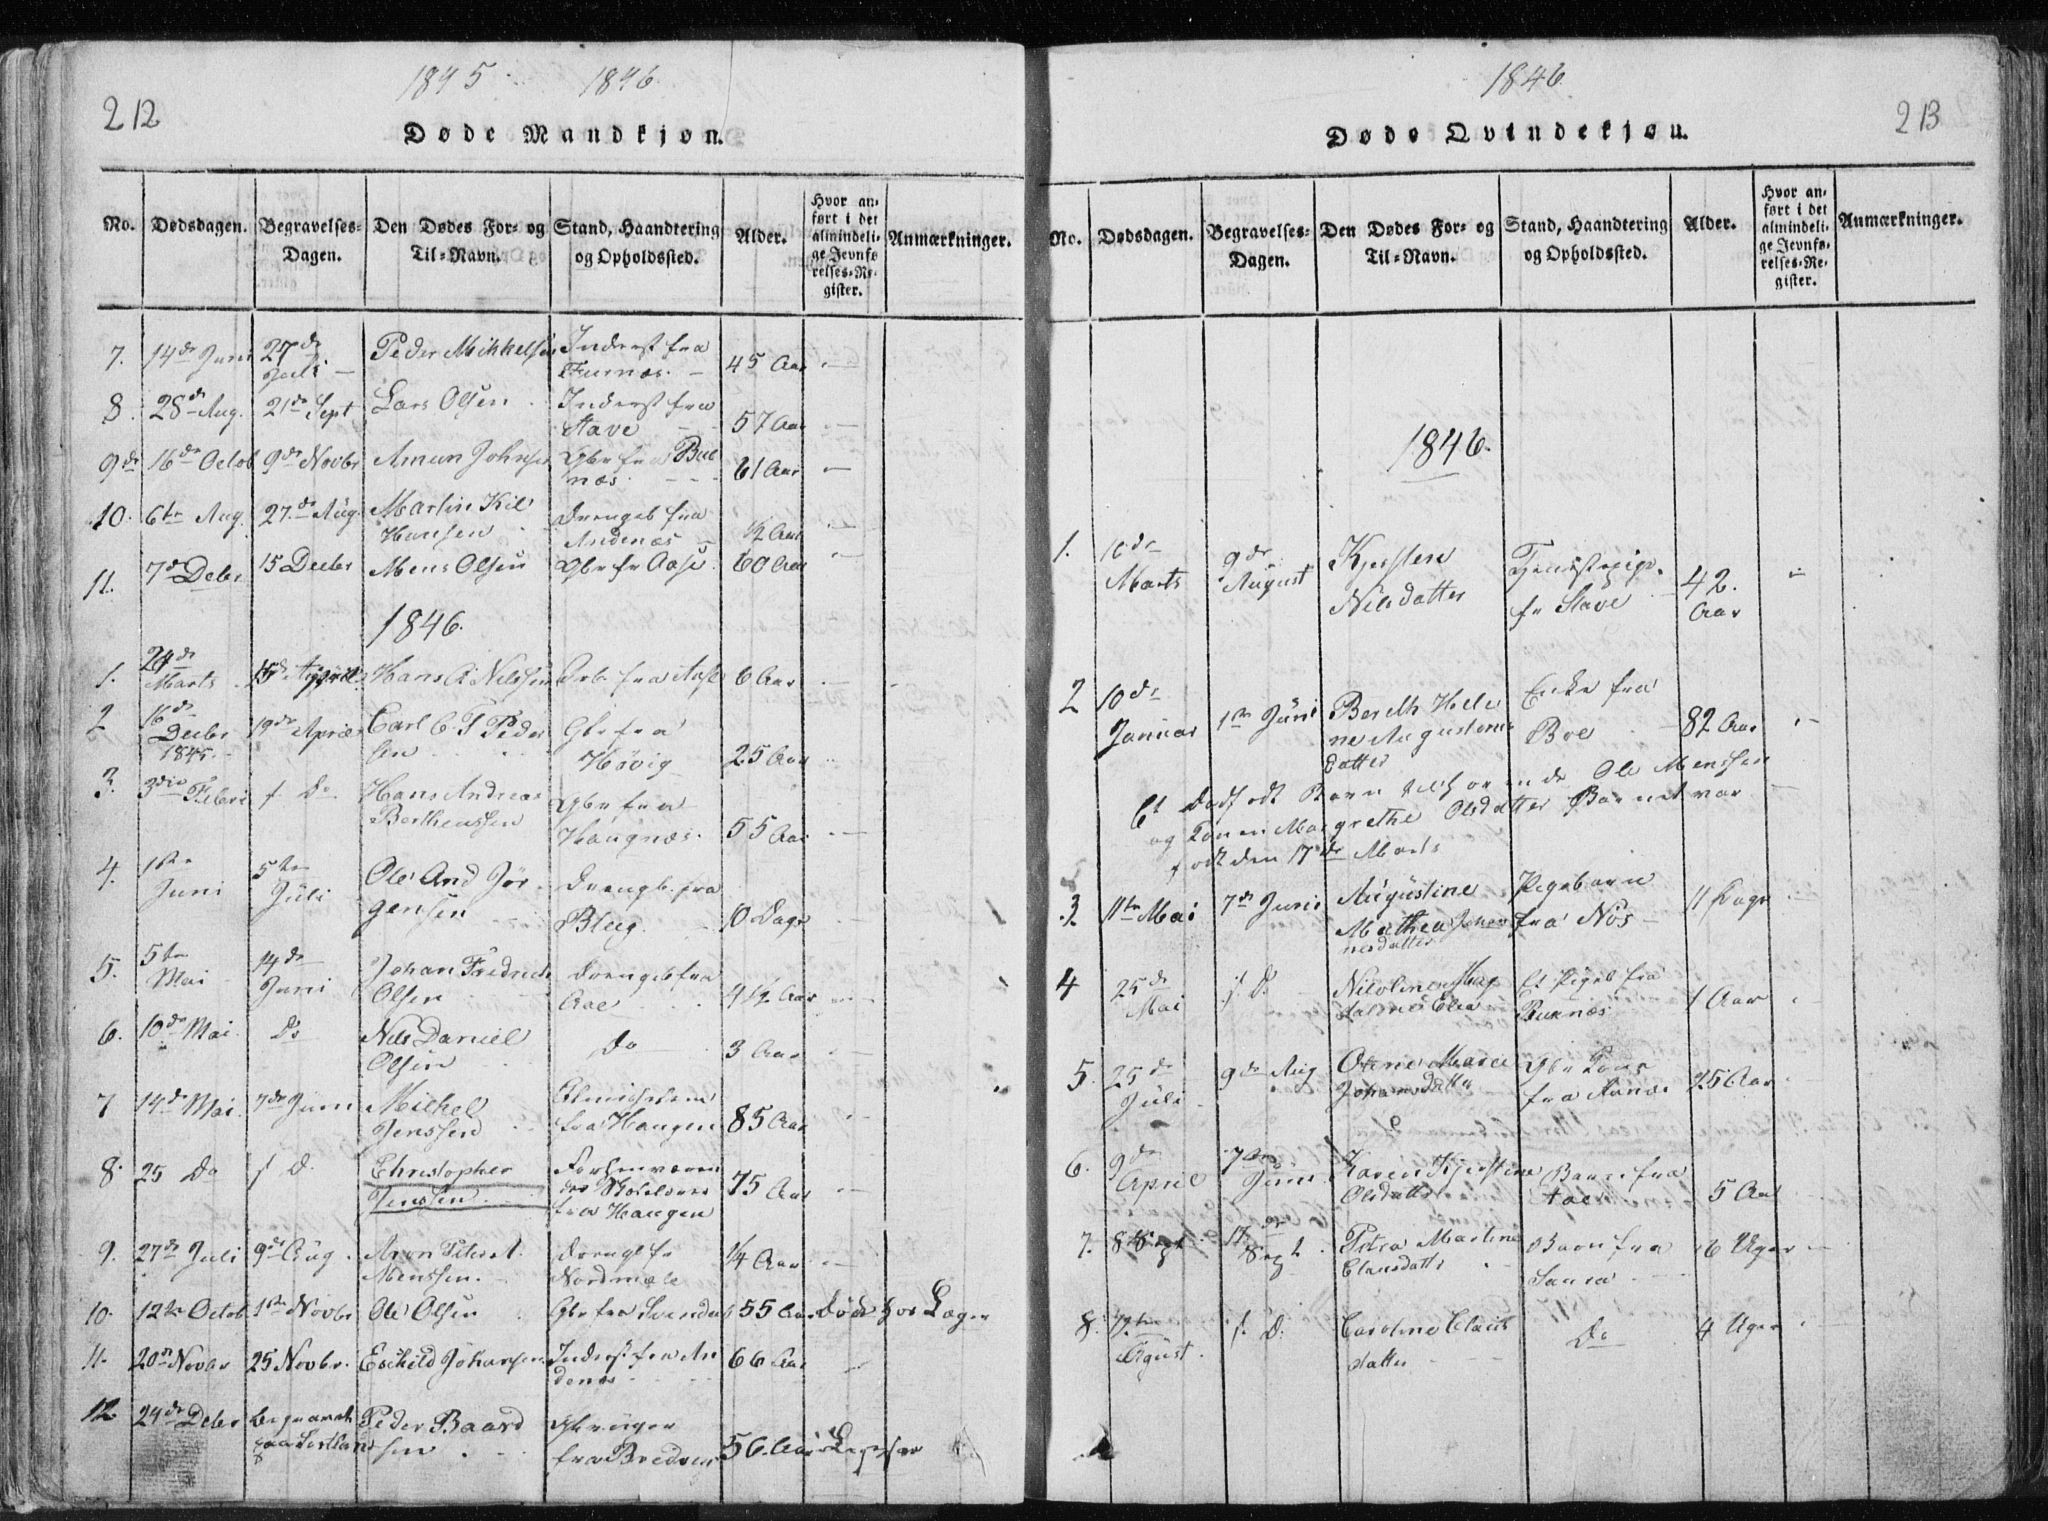 212
1845. 1846.
Døde Mandkjøn.
No. Dødsdagen. Begravelses-Dagen. Den Dødes For- og Til-Navn. Stand, Haandtering og Opholdssted. Alder. Hvor anført i det almindelige Jevnførelses-Register. Anmærkninger.
7. 14de Juni 27de Juli Peder Mikkelsen Inderst fra 45 Aar
8. 28de Aug. 21de Sept Lars Olsen Inderst fra Stave 57 Aar
9de 16de Octob 9de Novbr Amun Johnsen Gbr fra Buenæs 61 Aar
10. 6te Aug. 27de Aug. Martin Hansen Drengeb fra Andenæs ½ Aar
11. 7de Decbr 15 Decbr Mens Olsen Gbr fr Aase 60 Aar
1846.
1. 24de Marts 15de April Hans A Nilssen fra Aase 6 Aar
2 16de Decbr 1845 19de April Carl C T Pedersen Gbr fra Høvig 25 Aar
3. 3die Febr f Do Hans Andreas Berthenssen Gbr fra Haugnæs. 55 Aar
4. 1ste Juni 5te Juli Ole And Jørgensen Drengb. fra Bleg. 10 Dage
5. 5te Mai 14de Juni Johan Fredrich Olsen Drengeb fra Aae 4½ Aar
6. 10de Mai Do Nils Daniel Olsen Do 3 Aar
7 14de Mai 7de Juni Michel Jenssen fra Haugen 85 Aar
8. 25 Do f D. Christopher Jenssen Forhenværende Skoleholder fra Haugen 75 Aar
9. 27de Juli 9de Aug. Aron Peter Menssen. Drengb fr Nordmele ¼ Aar
10. 12te Octob 1ste Novbr Ole Olsen Gbr fra 55 Aar Døde hos Læger
11. 20de Novbr 25 Novbr. Eschild Johansen Inderst fra Andenæs 66 Aar
12 24de Decbr begravet paa Sortland Peder Baardsen fra Bredvig 56 Aar
213
1846.
Døde Qvindekjøn.
No. Dødsdagen. Begravelses-Dagen. Den Dødes For- og Til-Navn. Stand, Haandtering og Opholdssted. Alder. Hvor anført i det almindelige Jevnførelses-Register. Anmærkninger.
1846.
1. 10de Marts 9de August Kjersten Nilsdatter Tjenestepige fr Stave 42. Aar
2 10de Januar 1ste Juni Bereth Helene Augustinusdatter Enke fra Boe 82 Aar
Et Dødfødt Barn tilhørende Ole Menssen
og Konen Margrethe Olsdatter Barnet var
født den 17de Marts
3. 11te Mai 7de Juni Augustine Mathea Johannesdatter Pigebarn fra Nøs 11 Dage
4 25de Mai f. D. Et Pigeb fra Buenæs 1 Aar
5. 25de Juli 9de Aug Marie Johansdatter Gbr Kone fra 25 Aar
6. 9de April 7de Juni Karen Kjerstine Olsdatter Barn fra Aae 5 Aar
7. 8 Sept 17de Sept Petra Martine Clausdatter Barn fra 6 Uger
8. August. f. D. Caroline Clausdatter Do 4 Uger